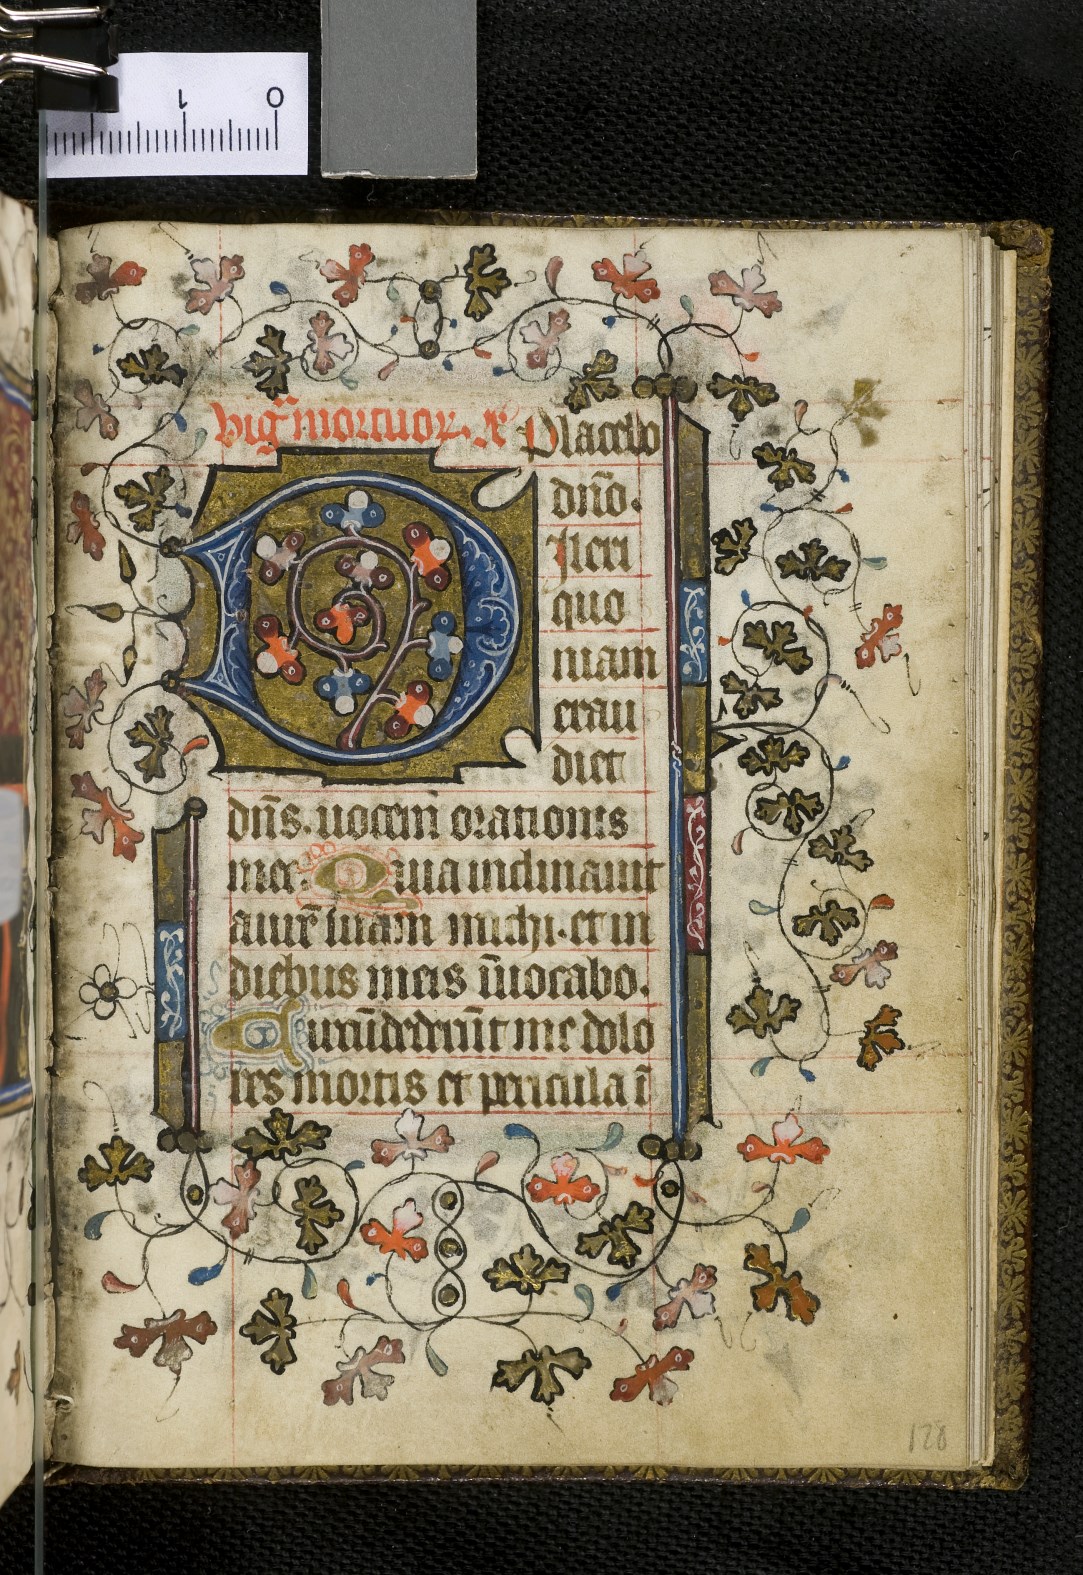 0 1
vig̅ mortuor. A̅ Placebo
D
dn̅o.
Ilexi
quo
niam
exau
diet
dn̅s. uocem̅ orationis
mee. Quia inclinauit
aurē suam michi. et in
diebus meis īuocabo.
Circūdederūt me dolo
res mortis et pericula ī
128